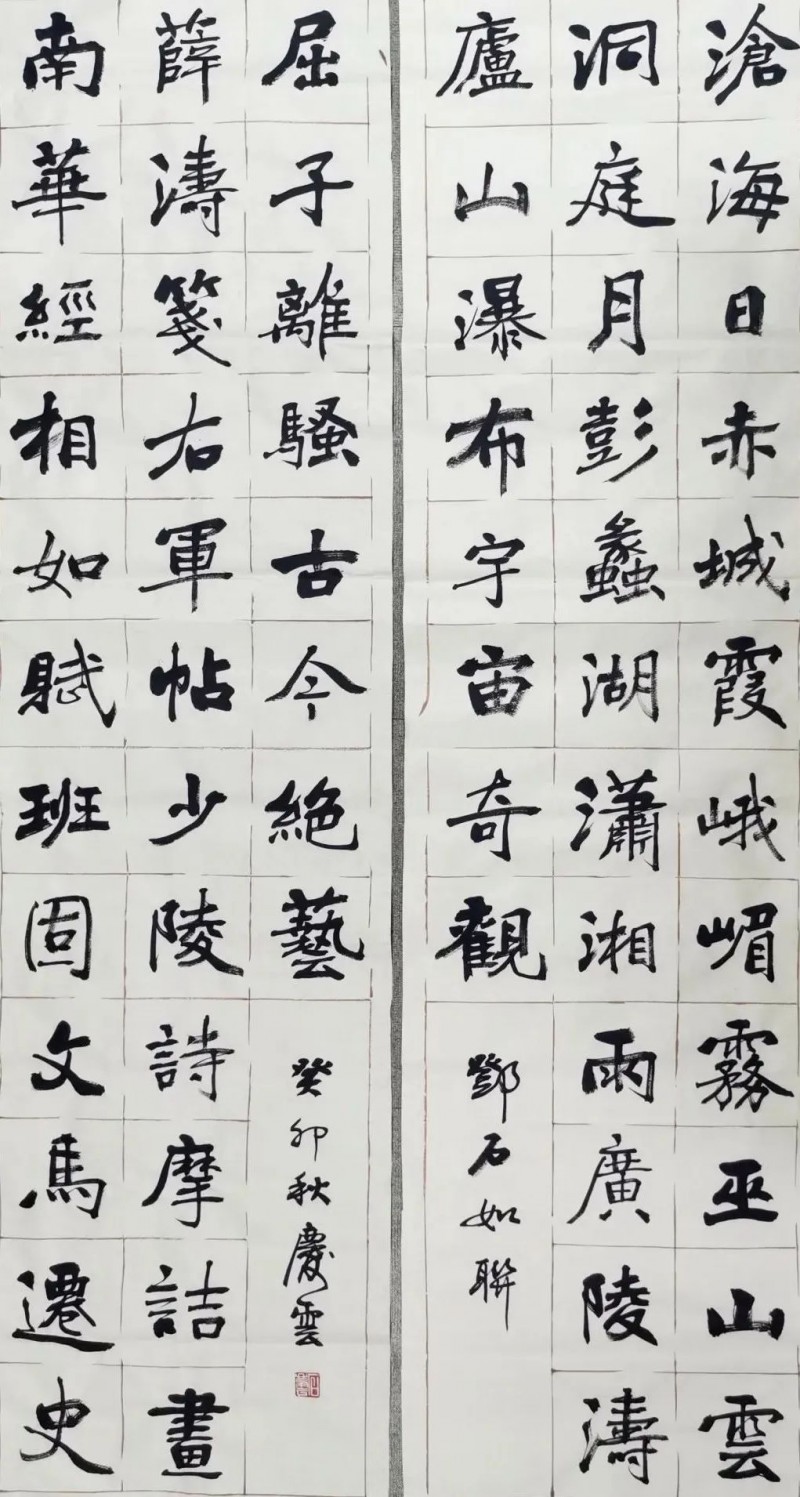 滄海日赤城霞峨嵋霧巫山雲
洞庭月彭蠡湖瀟湘雨廣陵濤
廬山瀑布宇宙奇觀
鄧石如聯
南華經相如賦班固文馬遷史
薛濤箋右軍帖少陵詩摩詰畫
屈子離騷古今絶藝
癸卯秋慶雲